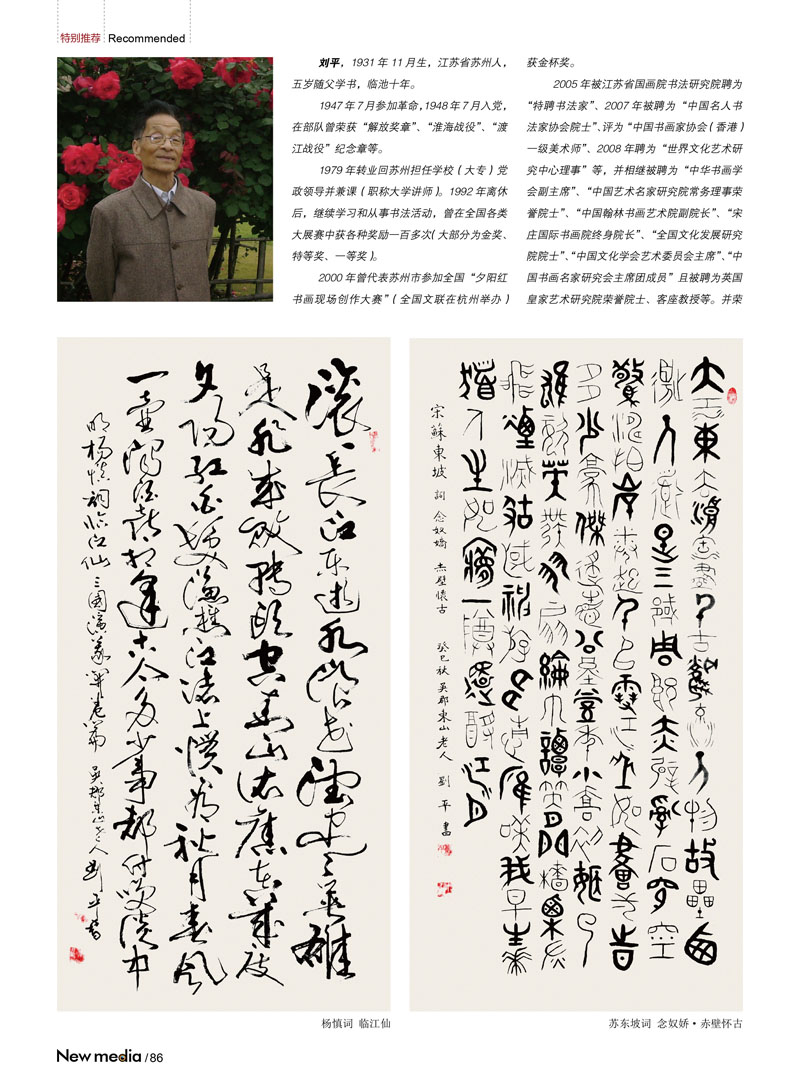 特别推荐 Recommended
刘平，1931 年 11 月生，江苏省苏州人，
五岁随父学书，临池十年。
1947 年 7 月参加革命，1948 年 7 月入党，
在部队曾荣获“解放奖章”、“淮海战役”、“渡
江战役”纪念章等。
1979 年转业回苏州担任学校（大专）党
政领导并兼课（职称大学讲师）。1992 年离休
后，继续学习和从事书法活动，曾在全国各类
大展赛中获各种奖励一百多次（大部分为金奖、
特等奖、一等奖）。
2000 年曾代表苏州市参加全国“夕阳红
书画现场创作大赛”（全国文联在杭州举办）
获金杯奖。
2005 年被江苏省国画院书法研究院聘为
“特聘书法家”、2007 年被聘为“中国名人书
法家协会院士”、评为“中国书画家协会（香港）
一级美术师”、2008 年聘为“世界文化艺术研
究中心理事”等，并相继被聘为“中华书画学
会副主席”、“中国艺术名家研究院常务理事荣
誉院士”、“中国翰林书画艺术院副院长”、“宋
庄国际书画院终身院长”、“全国文化发展研究
院院士”、“中国文化学会艺术委员会主席”、“中
国书画名家研究会主席团成员”且被聘为英国
皇家艺术研究院荣誉院士、客座教授等。并荣
滚滚長江东逝水浪花淘尽英雄
是非成敗转头空青山依舊在幾度
夕阳红白髮漁樵江渚上慣看秋月春風
一壶濁酒喜相逢古今多少事都付笑談中
明楊慎詞临江仙 三國演義開卷篇 吴郡東山老人劉平書
大江東去浪淘盡千古風流人物故壘西
邊人道是三國周郎赤壁亂石穿空
驚濤拍岸捲起千堆雪江山如畫一時
多少豪傑遙想公瑾當年小喬初嫁了
雄姿英發羽扇綸巾談笑間檣櫓灰
飛煙滅故國神遊多情應笑我早生華
髮人生如夢一樽還酹江月
宋蘇東坡詞 念奴嬌 赤壁懷古 癸巳秋吴郡東山老人 劉平書
杨慎词 临江仙
苏东坡词 念奴娇·赤壁怀古
New media / 86